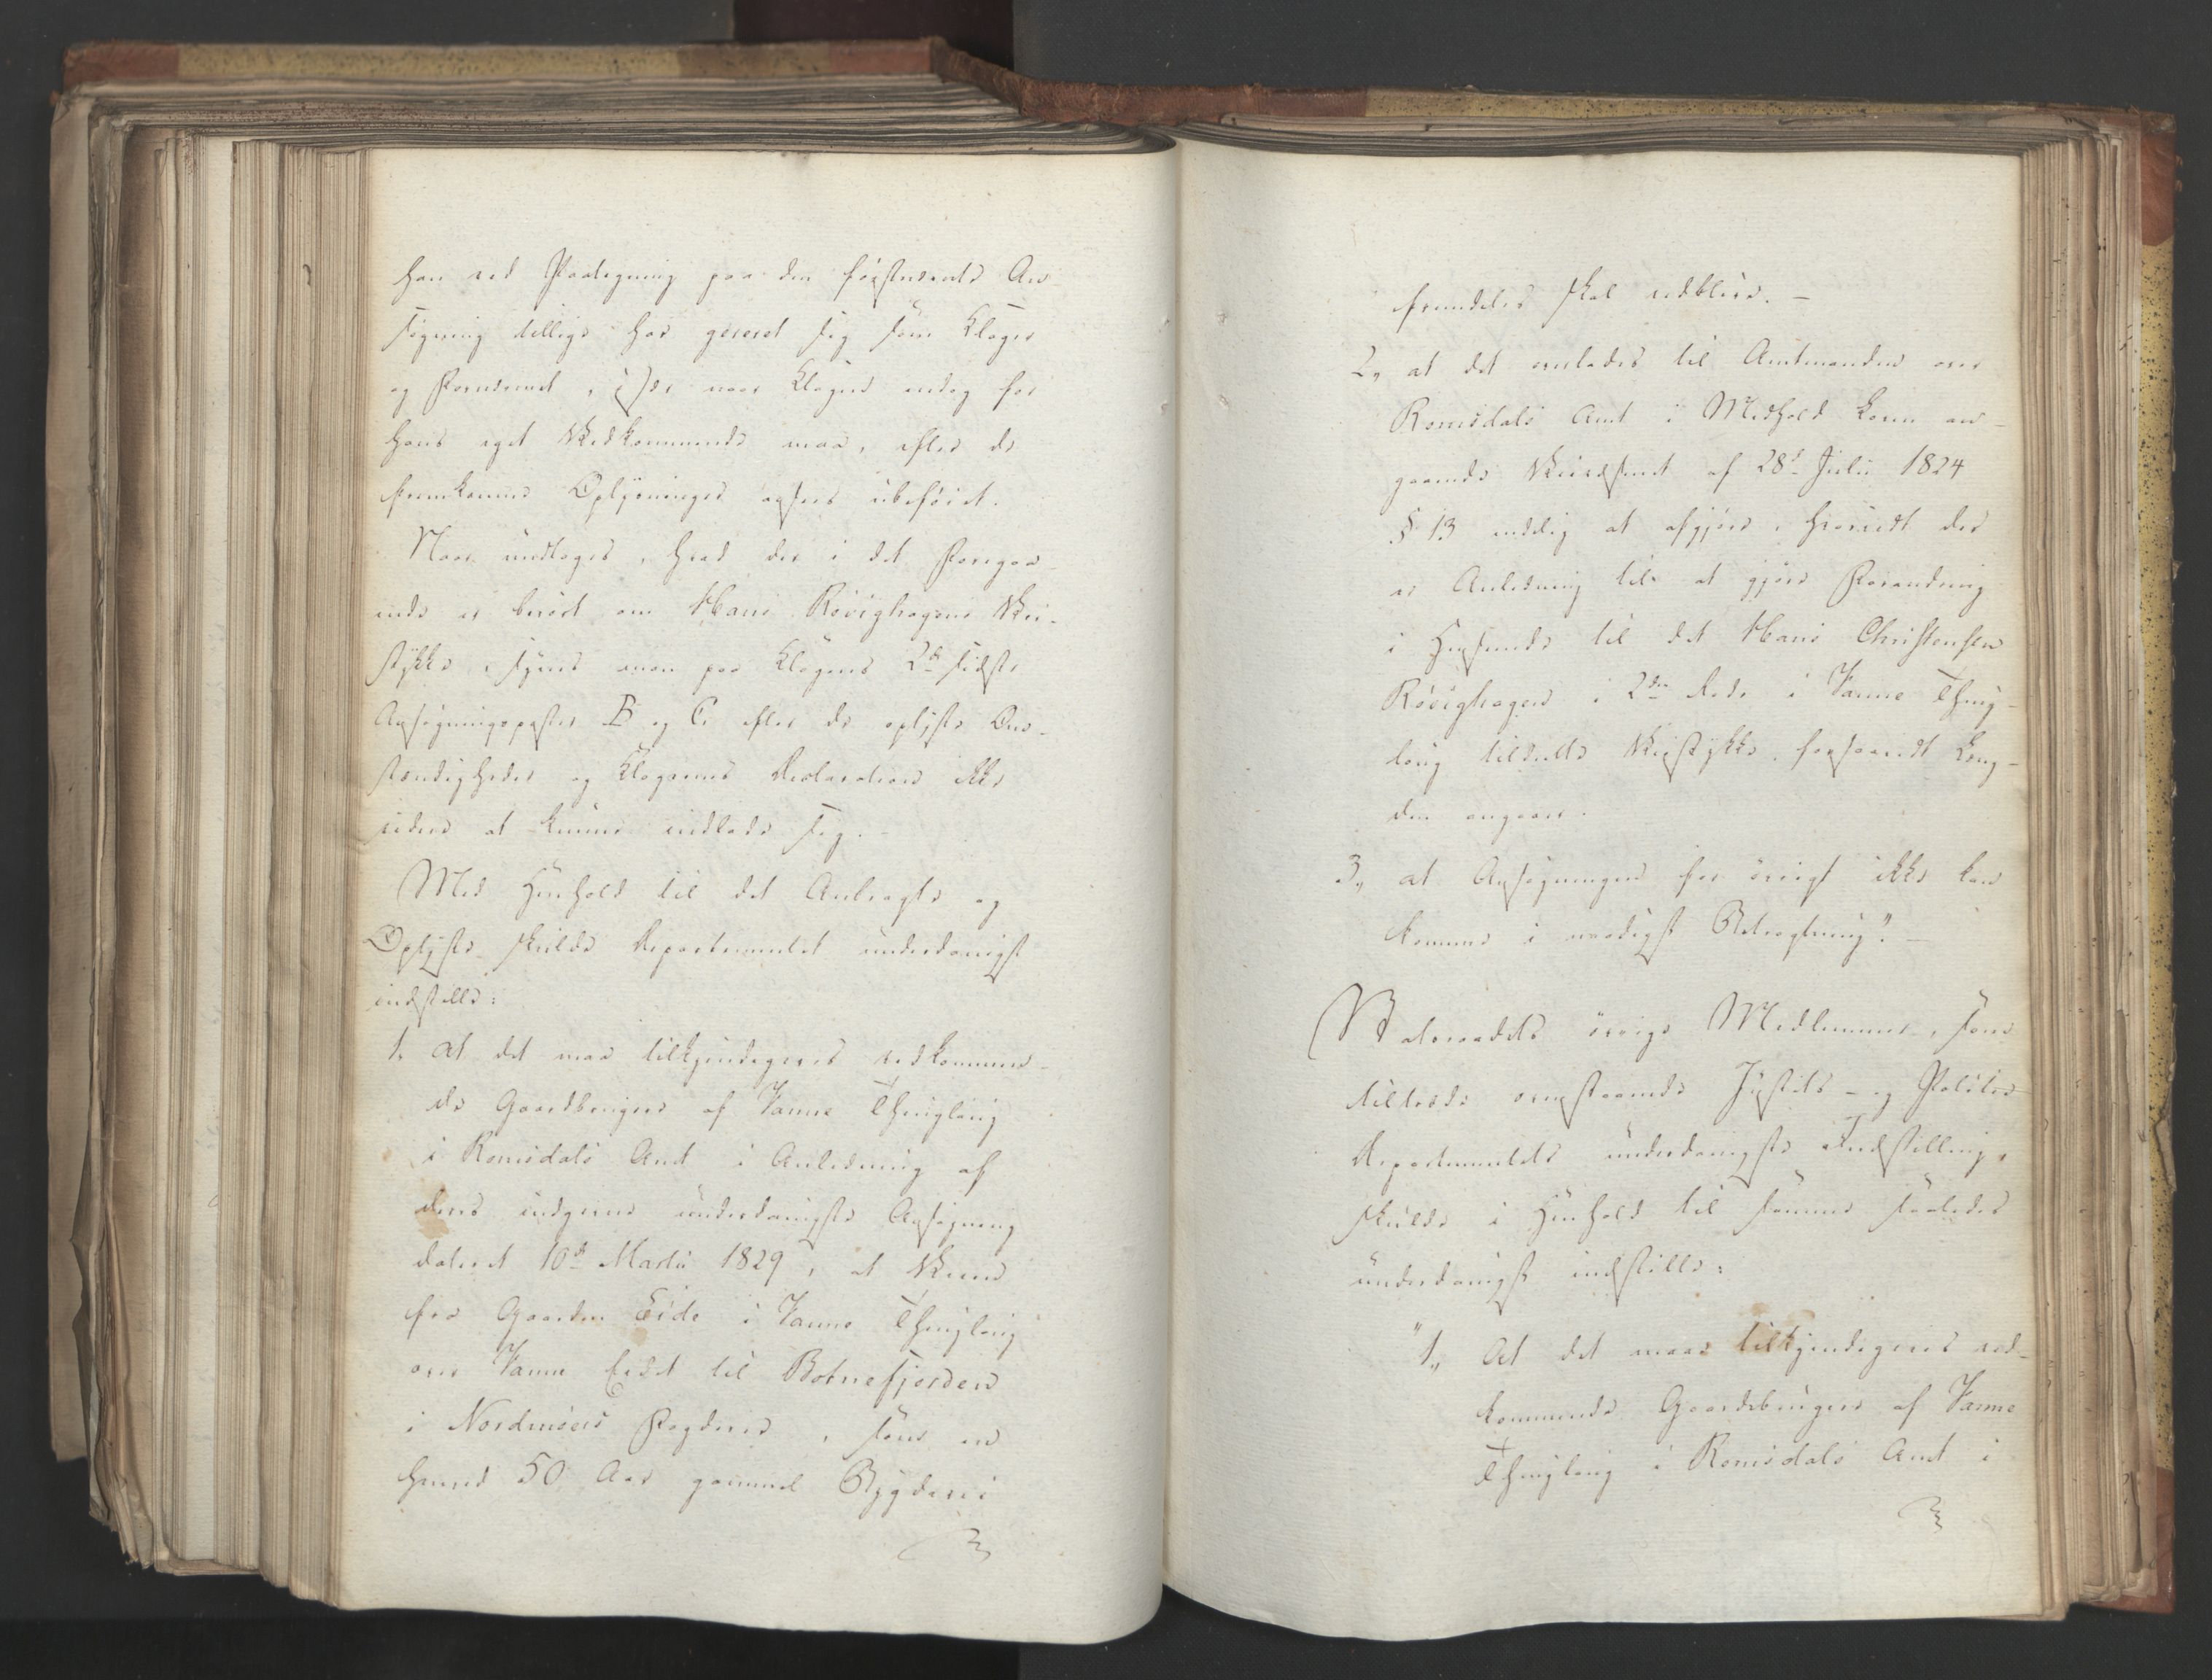 han ved Paategning paa den førstnævnte An-
søgning tillige har gereret sig som Klager
og Fornærmet, især naar Klagen endog for
hans eget Vedkommende maa, efter de
fremkomne Oplysninger ansees ubeføiet.
Naar undtages, hvad der i det Foregaa-
ende er berørt om Hans Røvighagens Vei-
stykke, synes man paa Klagens 2de sidste
Ansøgningsposter B og C efter de oplyste Om-
stændigheder og Klagernes Declaration ikke
videre at kunne indlade sig.
Med Henhold til det Anbragte og
Oplyste skulde Departementet underdanigst
indstille:
1, at det maa tilkjendegives vedkommen-
de Gaardbrugere af Vanne Thinglaug
i Romsdals Amt i Anledning af
deres indgivne underdanigste Ansøgning
dateret 10de Martii 1829, at Veien
fra Gaarden Eide i Vanne Thinglaug
over Vanne Eidet til Botnefjorden
i Nordmøers Fogderie, som en
henved 50 Aar gammel Bygdevei
fremdeles skal vedblive. -
2, at det overlades til Amtmanden over
Romsdals Amt i Medhold Lovn an-
gaaende Veivæsenet af 28de Julii 1824
§ 13 endelig at afgjøre, hvorvidt der
er Anledning til at gjøre Forandring
i Henseende til det Hans Christensen
Røvighagen i 2den Rode i Vanne Thing-
laug tildeelte Veistykke, forsaavidt Læng-
den angaaer.
3, at Ansøgningen for øvrigt ikke kan
komme i naadigst Betragtning". -
Statsraadets øvrige Medlemmer, som
tiltræde ovenstaaende Justits- og Politie-
Departementets underdanigste Indstilling,
skulde i Henhold til samme saaledes
underdanigst indstille:
"1, At det maae tilkjendegives ved-
kommende Gaardebrugere af Vanne
Thinglaug i Romsdals Amt i